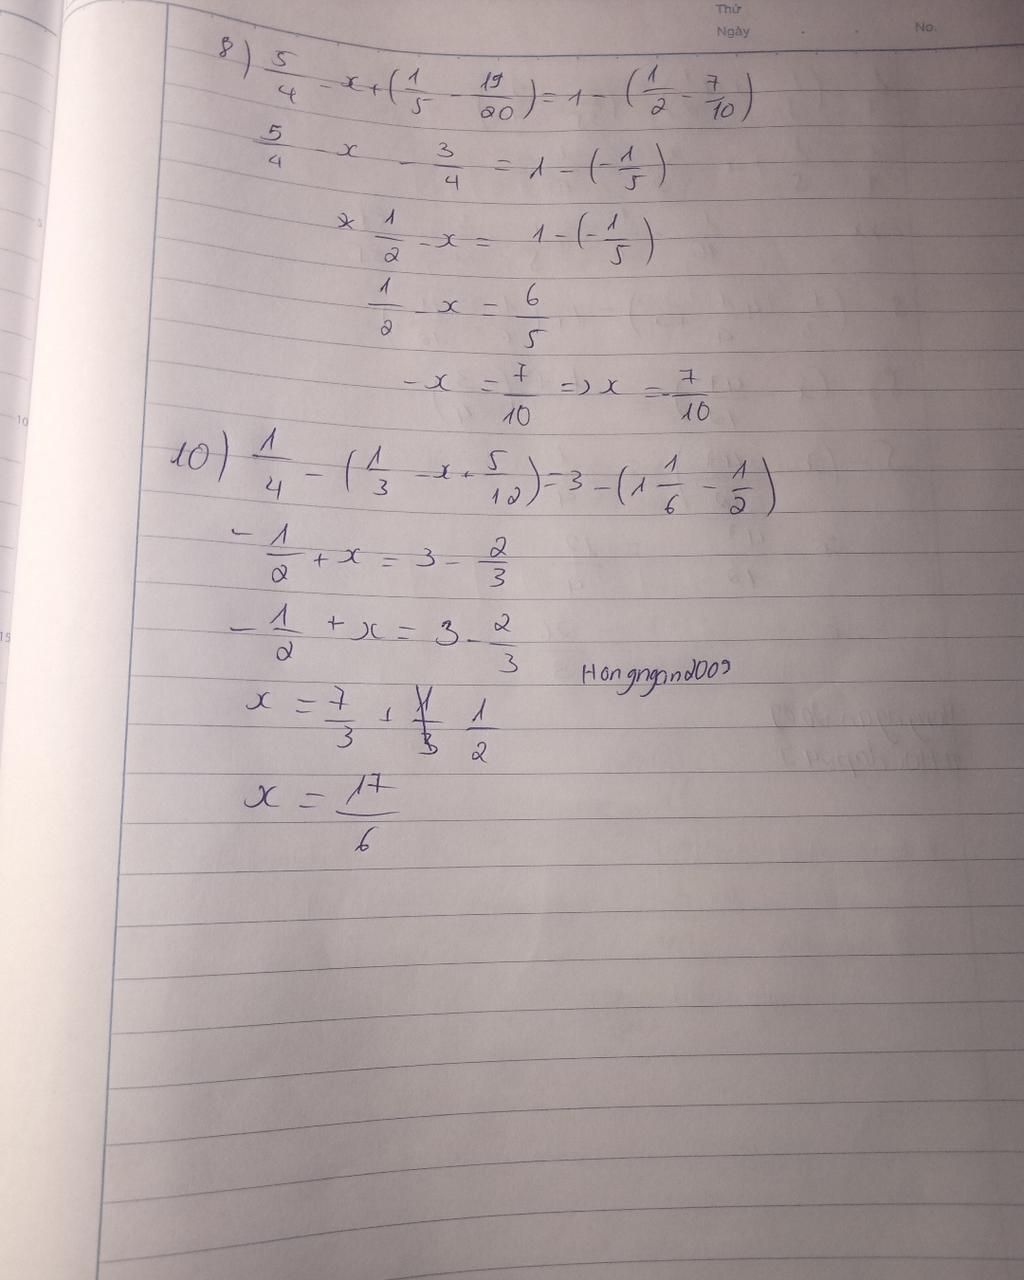 Thứ
Ngày . . No.
8) 5/4 - x + (1/5 - 19/20) = 1 - (1/2 - 7/10)
5/4 - x - 3/4 = 1 - (-1/5)
* 1/2 - x = 1 - (-1/5)
1/2 - x = 6/5
- x = 7/10 => x = -7/10
10) 1/4 - (1/3 - x + 5/12) = 3 - (1 1/6 - 1/2)
- 1/2 + x = 3 - 2/3
- 1/2 + x = 3 - 2/3
Hongngan2009
x = 7/3 + 1/2
x = 17/6
5
10
15